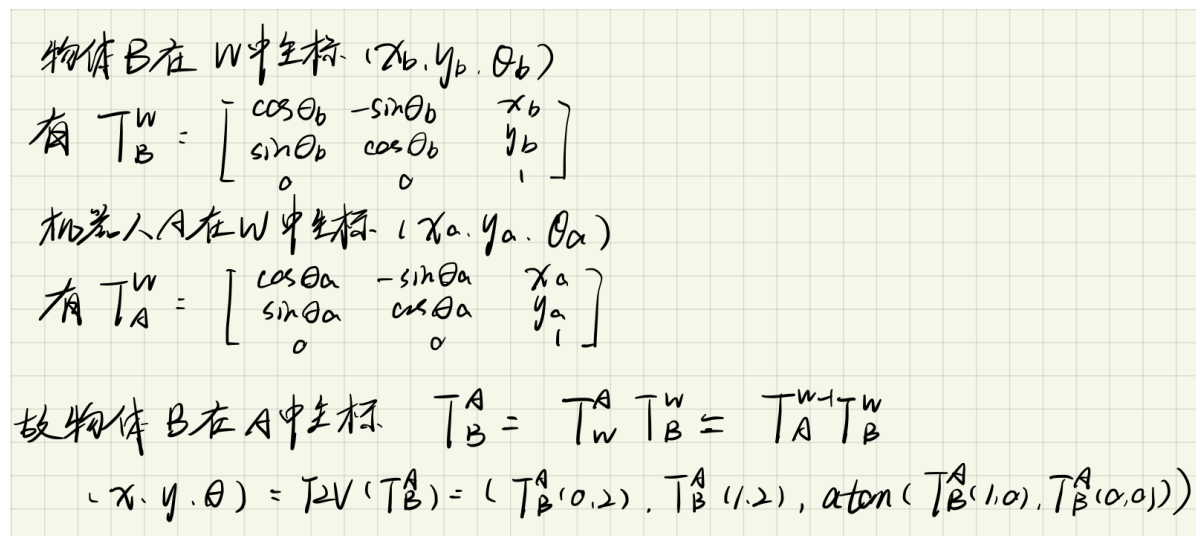 物体B在W中坐标 (x_b, y_b, θ_b)
有 T_B^W = [ cosθ_b -sinθ_b x_b
sinθ_b cosθ_b y_b
0 0 1 ]
机器人A在W中坐标 (x_a, y_a, θ_a)
有 T_A^W = [ cosθ_a -sinθ_a x_a
sinθ_a cosθ_a y_a
0 0 1 ]
故物体B在A中坐标 T_B^A = T_W^A T_B^W = T_A^{W-1} T_B^W
(x, y, θ) = T2V(T_B^A) = ( T_B^A(0,2), T_B^A(1,2), atan( T_B^A(1,0), T_B^A(0,0) ) )